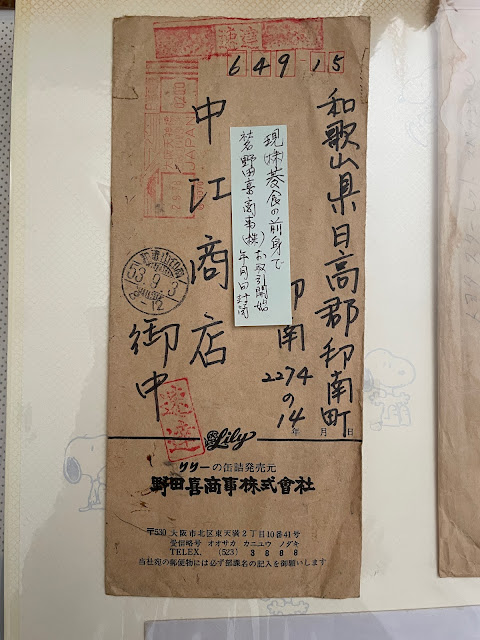 速達
649-15
和歌山県日高郡印南町
印南
2274
の
14
現(株)菱食の前身で
社名野田喜商事(株)お取引開始
年月日封筒
中江商店
御中
JAPAN
53.9.3
12
速達
Lily
年 月 日
リリーの缶詰発売元
野田喜商事株式會社
〒530 大阪市北区東天満2丁目10番41号
受信略号 オオサカ カニユウ ノダキ
TELEX. (523) 3888
当社宛の郵便物には必ず部課名の記入を御願いします